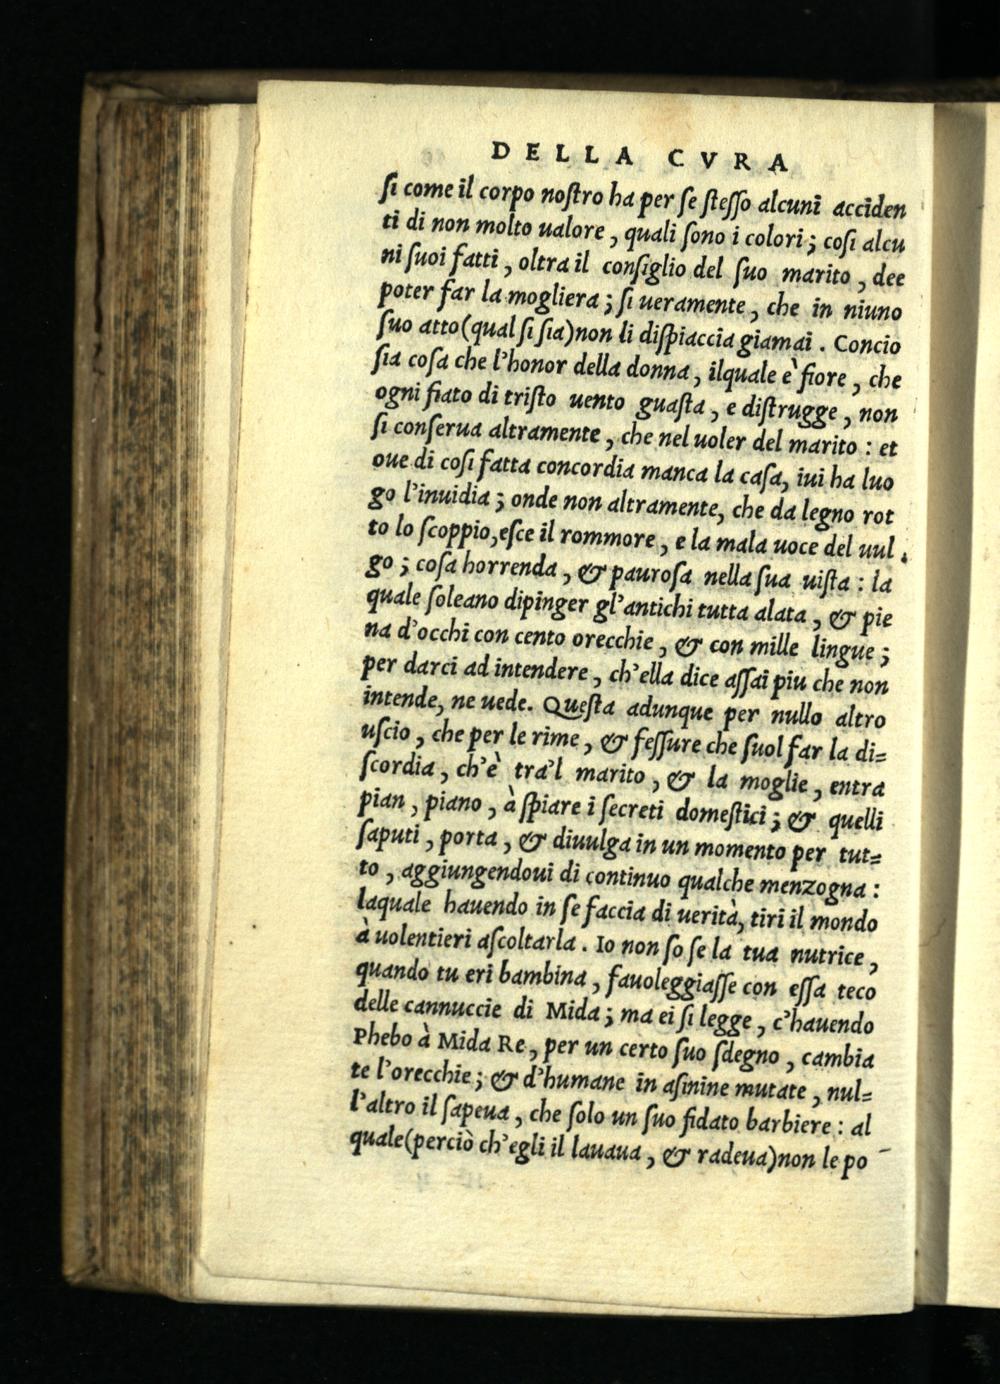 DELLA CVRA
ſi come il corpo noſtro ha per ſe ſteſſo alcuni acciden
ti di non molto ualore, quali ſono i colori; coſi alcu
ni ſuoi fatti, oltra il conſiglio del ſuo marito, dee
poter far la mogliera; ſi ueramente, che in niuno
ſuo atto(qual ſi ſia)non li diſpiaccia giamai. Concio
ſia coſa che l'honor della donna, ilquale è fiore, che
ogni fiato di triſto uento guaſta, e diſtrugge, non
ſi conſerua altramente, che nel uoler del marito: et
oue di coſi fatta concordia manca la caſa, iui ha luo
go l'inuidia; onde non altramente, che da legno rot
to lo ſcoppio,eſce il rommore, e la mala uoce del uul
go; coſa horrenda, & pauroſa nella ſua uiſta: la
quale ſoleano dipinger gl'antichi tutta alata, & pie
na d'occhi con cento orecchie, & con mille lingue;
per darci ad intendere, ch'ella dice aſſai piu che non
intende, ne uede. Queſta adunque per nullo altro
uſcio, che per le rime, & feſſure che ſuol far la di=
ſcordia, ch'è tra'l marito, & la moglie, entra
pian, piano, à ſpiare i ſecreti domeſtici; & quelli
ſaputi, porta, & diuulga in un momento per tut=
to, aggiungendoui di continuo qualche menzogna:
laquale hauendo in ſe faccia di uerità, tiri il mondo
à uolentieri aſcoltarla. Io non ſo ſe la tua nutrice,
quando tu eri bambina, fauoleggiaſſe con eſſa teco
delle cannuccie di Mida; ma ei ſi legge, c'hauendo
Phebo à Mida Re, per un certo ſuo ſdegno, cambia
te l'orecchie; & d'humane in aſinine mutate, nul=
l'altro il ſapeua, che ſolo un ſuo fidato barbiere: al
quale(perciò ch'egli il lauaua, & radeua)non le po